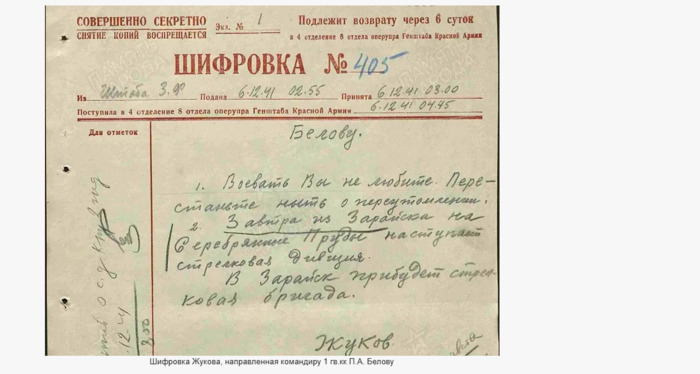 СОВЕРШЕННО СЕКРЕТНО
СНЯТИЕ КОПИЙ ВОСПРЕЩАЕТСЯ
Экз. № 1
Подлежит возврату через 6 суток
в 4 отделение 8 отдела оперупра Генштаба Красной Армии
ШИФРОВКА № 405
Из Штаба З.Ф. Подана 6.12.41 02.55 Принята 6.12.41 03.00
Поступила в 4 отделение 8 отдела оперупра Генштаба Красной Армии 6.12.41 04.45
Для отметок
Белову.
1. Воевать Вы не любите. Пере-
станьте ныть о переутомлении.
2. Завтра из Зарайска на
Серебрянные Пруды наступает
стрелковая дивизия.
В Зарайск прибудет стрел-
ковая бригада.
Жуков
Шифровка Жукова, направленная командиру 1 гв.кк П.А. Белову